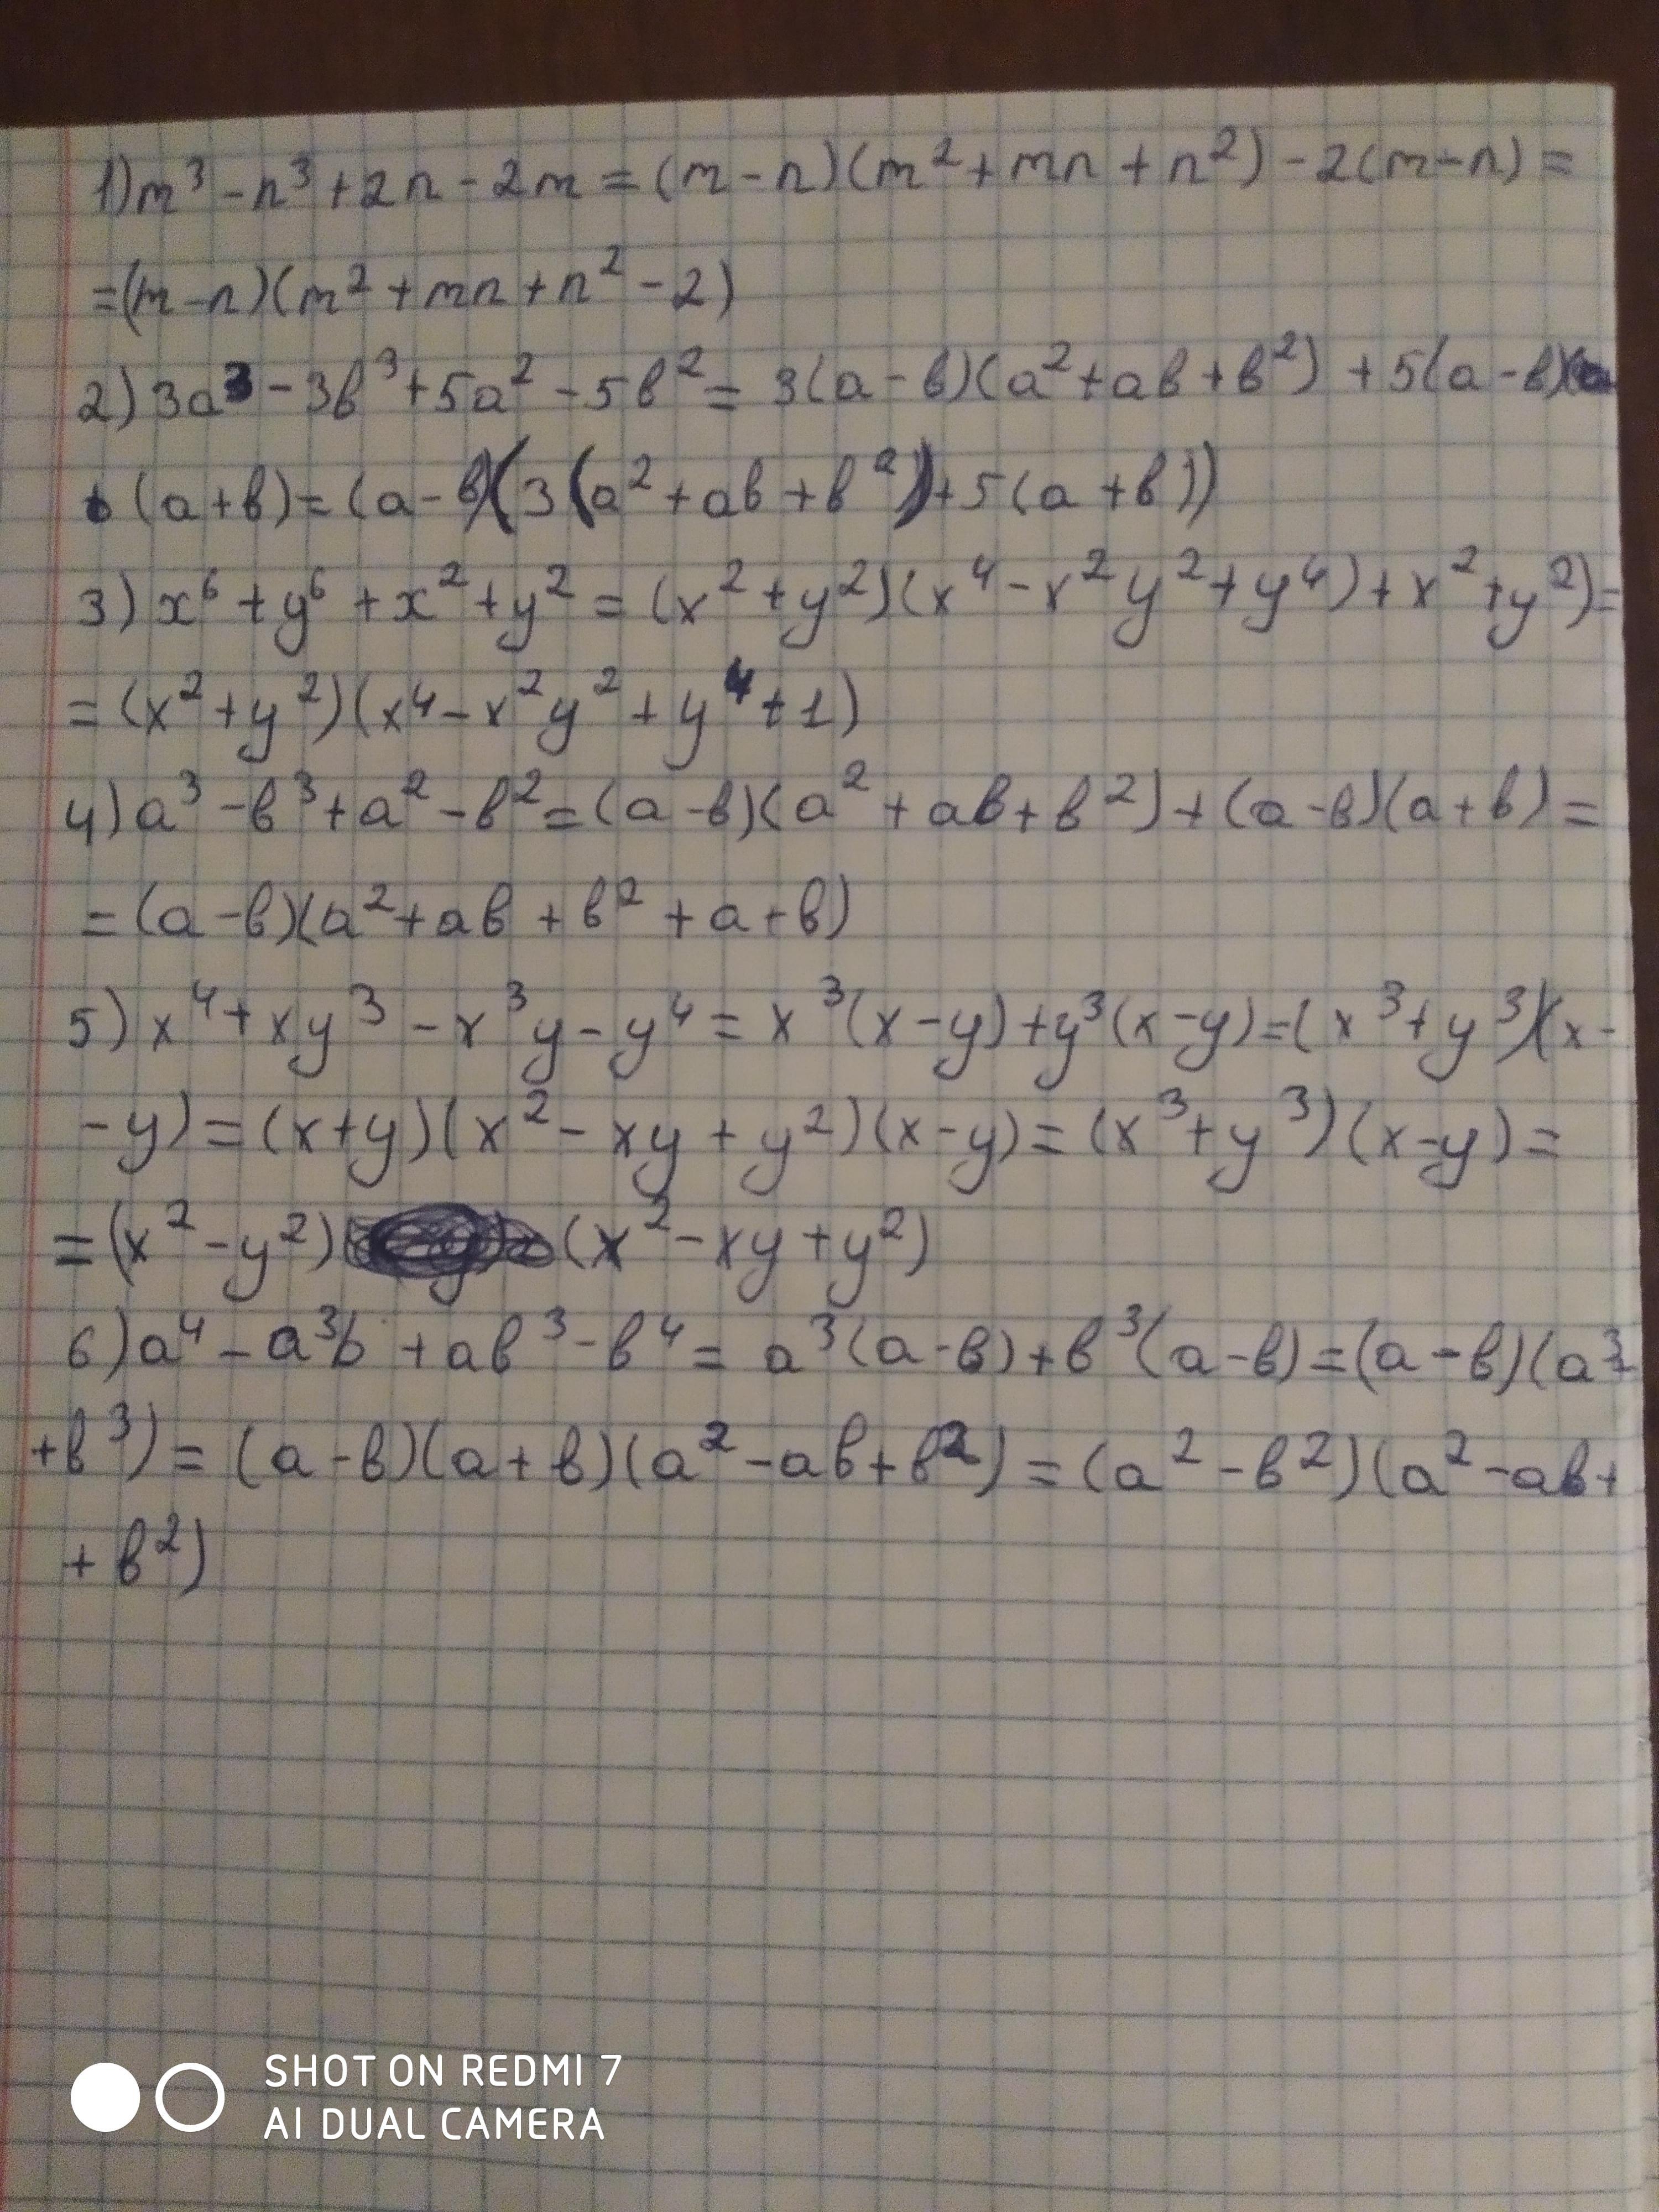 1) m³ - n³ + 2n - 2m = (m - n)(m² + mn + n²) - 2(m - n) =
= (m - n)(m² + mn + n² - 2)
2) 3a³ - 3в³ + 5a² - 5в² = 3(a - в)(a² + aв + в²) + 5(a - в)
(a + в) = (a - в)(3(a² + aв + в²) + 5(a + в))
3) x⁶ + y⁶ + x² + y² = (x² + y²)(x⁴ - x²y² + y⁴) + x² + y²) =
= (x² + y²)(x⁴ - x²y² + y⁴ + 1)
4) a³ - в³ + a² - в² = (a - в)(a² + aв + в²) + (a - в)(a + в) =
= (a - в)(a² + aв + в² + a + в)
5) x⁴ + xy³ - x³y - y⁴ = x³(x - y) + y³(x - y) = (x³ + y³)(x -
- y) = (x + y)(x² - xy + y²)(x - y) = (x³ + y³)(x - y) =
= (x² - y²) (x² - xy + y²)
6) a⁴ - a³b + aв³ - в⁴ = a³(a - в) + в³(a - в) = (a - в)(a³ +
+ в³) = (a - в)(a + в)(a² - aв + в²) = (a² - в²)(a² - aв +
+ в²)
SHOT ON REDMI 7
AI DUAL CAMERA